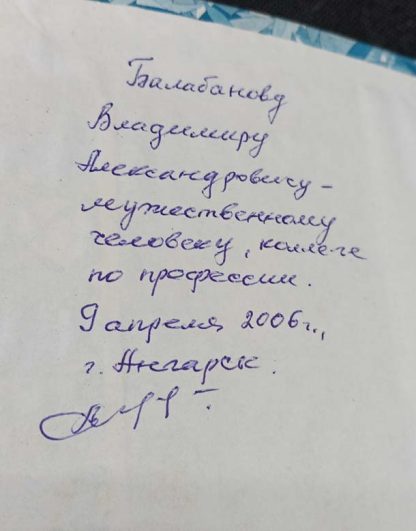 Балабанову
Владимиру
Александровичу –
мужественному
человеку, коллеге
по профессии.
9 апреля 2006 г.,
г. Ангарск.